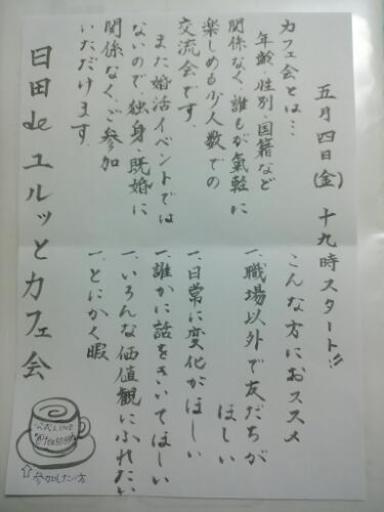 五月四日(金) 十九時スタート!!
カフェ会とは…
年齢・性別・国籍など
関係なく、誰もが氣軽に
楽しめる少人数での
交流会です。
また婚活イベントでは
ないので、独身・既婚に
関係なく、ご参加
いただけます。
こんな方におススメ
一、職場以外で友だちが
ほしい
一、日常に変化がほしい
一、誰かに話をきいてほしい
一、いろんな価値観にふれたい
一、とにかく暇
日田deユルッとカフェ会
⇧参加したい方